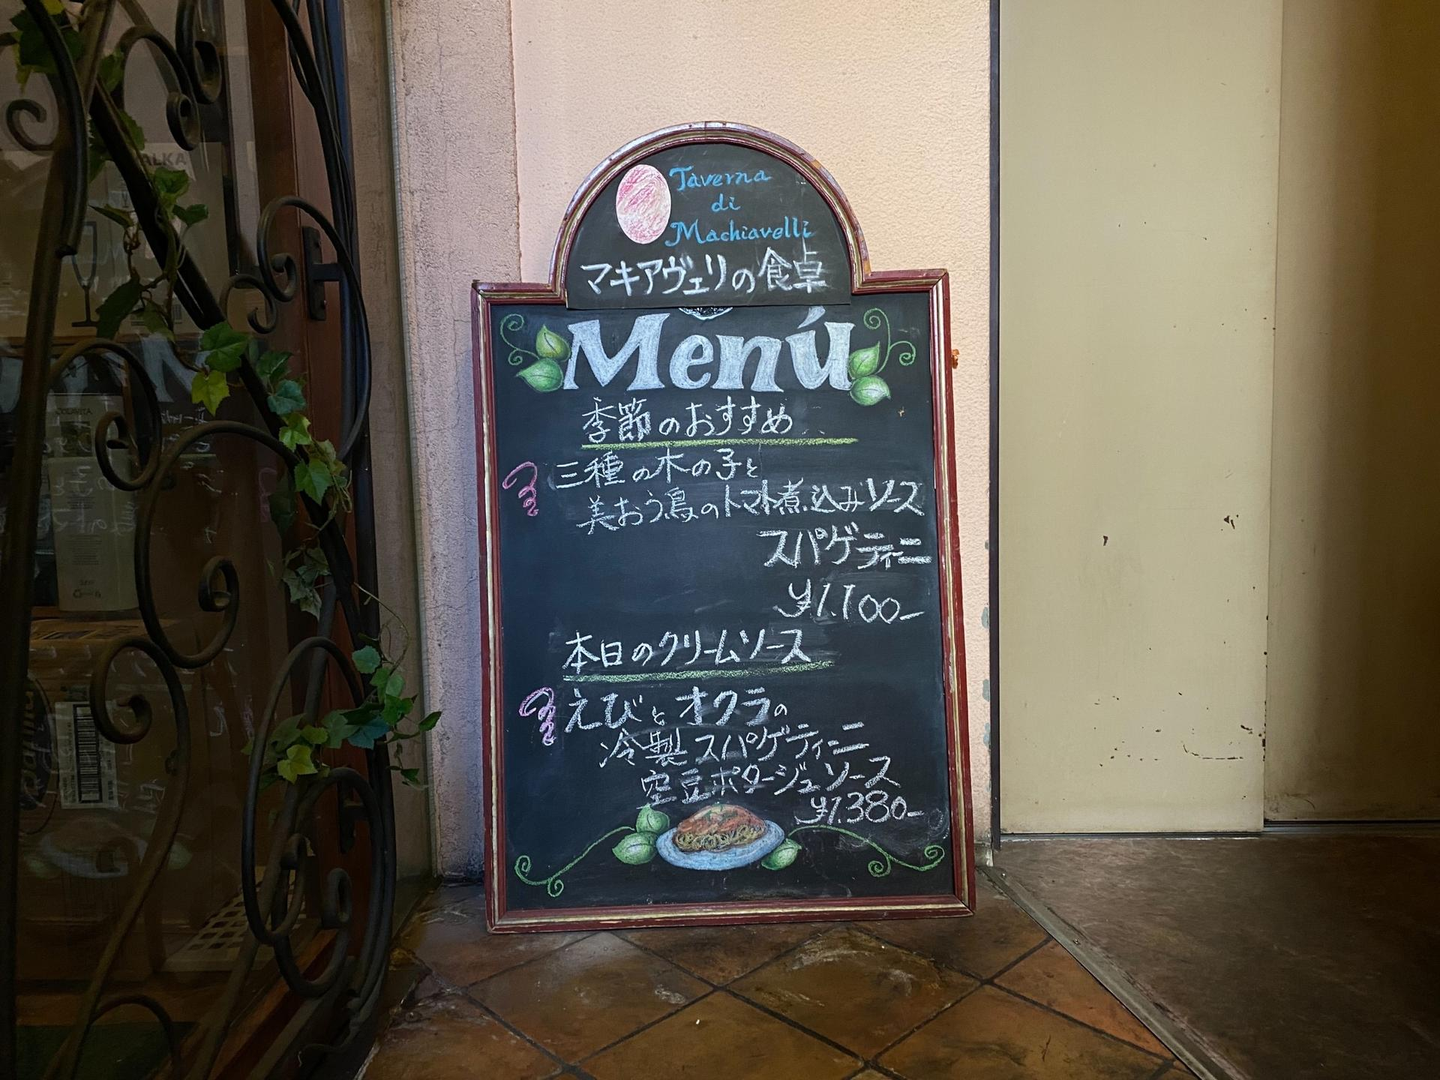 Taverna
di
Machiavelli
マキアヴェリの食卓
Menú
季節のおすすめ
三種の木の子と
美おう鶏のトマト煮込みソース
スパゲティーニ
¥1.100-
本日のクリームソース
えびとオクラの
冷製スパゲティーニ
空豆ポタージュソース
¥1.380-